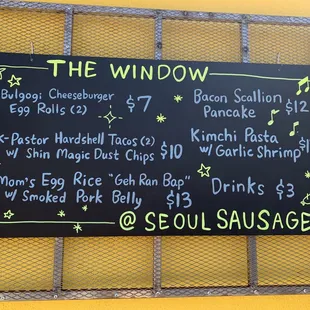 THE WINDOW
Bulgogi Cheeseburger
Egg Rolls (2) $7
K-Pastor Hardshell Tacos (2)
w/ Shin Magic Dust Chips $10
Mom's Egg Rice "Geh Ran Bap"
w/ Smoked Pork Belly $13
Bacon Scallion
Pancake $12
Kimchi Pasta
w/ Garlic Shrimp
Drinks $3
@ SEOUL SAUSAGE